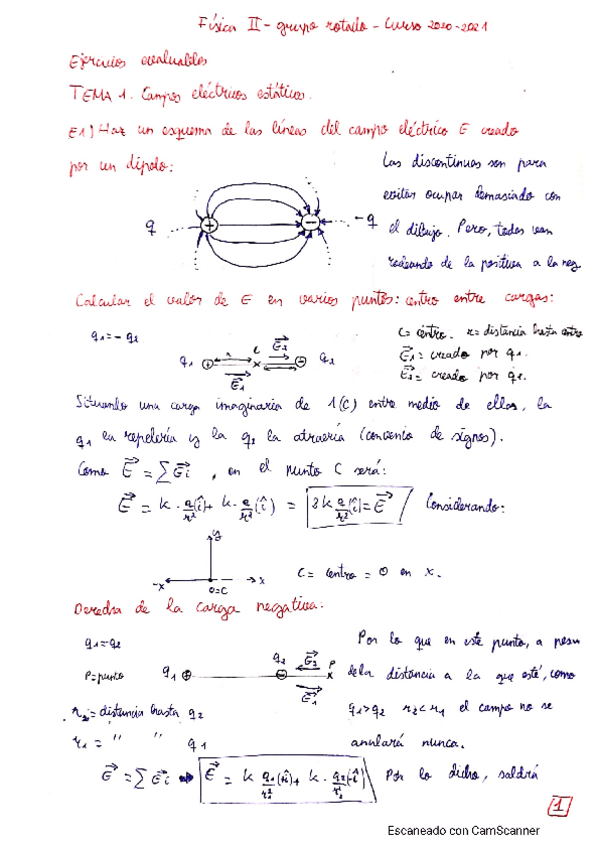 Física II - grupo rotado - Curso 2020-2021
Ejercicios evaluables
TEMA 1. Campos eléctricos estáticos.
E1) Haz un esquema de las líneas del campo eléctrico E creado
por un dipolo:
Las discontinuas son para
evitar ocupar demasiado con
el dibujo. Pero, todas van
rodeando de la positiva a la neg.
q + − -q
Calcular el valor de E en varios puntos: centro entre cargas:
q₁=-q₂
C= centro. r= distancia hasta centro
E₁= creado por q₁.
E₂= creado por q₂.
q₁ + r c E₂ − q₂
E₁
Situando una carga imaginaria de 1(C) entre medio de ellas, la
q₁ la repelería y la q₂ la atraería (convenio de signos).
Como E = ∑Ei, en el punto C será:
E = k · q/r² (î) + k · q/r² (î) = 2k q/r² (î) = E Considerando:
y
-x 0=C x
C= centro = 0 en x.
Derecha de la carga negativa.
q₁=q₂
P=punto
q₁ + q₂ − E₂ P
E₁
r₂= distancia hasta q₂
r₁ = " " q₁
Por lo que en este punto, a pesar
de la distancia a la que esté, como
q₁>q₂ r₂<r₁ el campo no se
anulará nunca.
E = ∑ Ei → E = k q₁/r₁² (î) + k · q₂/r₂² (-î) Por lo dicho, saldrá
1
Escaneado con CamScanner